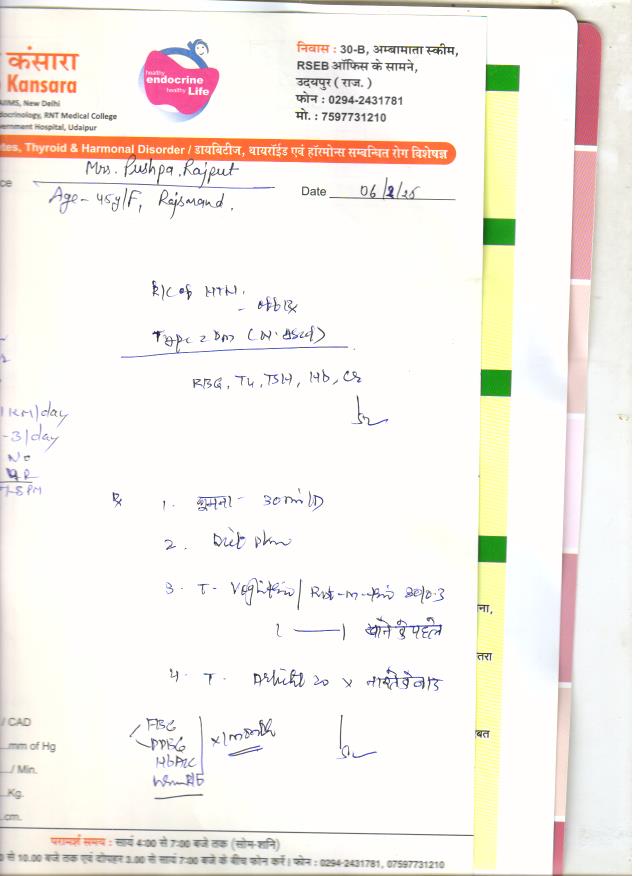 कंसारा
Kansara
AIIMS, New Delhi
docrinology, RNT Medical College
vernment Hospital, Udaipur
healthy
endocrine
healthy Life
निवास : 30-B, अम्बामाता स्कीम,
RSEB ऑफिस के सामने,
उदयपुर ( राज. )
फोन : 0294-2431781
मो. : 7597731210
tes, Thyroid & Harmonal Disorder / डायबिटीज, थायरॉईड एवं हॉरमोन्स सम्बन्धित रोग विशेषज्ञ
ce Mrs. Pushpa Rajput
Age - 45y/F, Rajsmand.
Date
K/C of HTN.
- off Rx
Type 2 Dm
RBG, T4, TSH, Hb, Cr
1 KM/day
-3/day
No
7-8 PM
Rx 1. घूमना - 30min/D
2. Diet plan
3. T-
खाने से पहले
4. T. 20 x नाश्ते के बाद
FBG
PPBG
HbA1c
x 1 month
/ CAD
mm of Hg
/ Min.
Kg.
cm.
ना,
तरा
बत
परामर्श समय : सायं 4:00 से 7:00 बजे तक (सोम-शनि)
0 से 10.00 बजे तक एवं दोपहर 3.00 से सायं 7:00 बजे के बीच फोन करें। फोन : 0294-2431781, 07597731210